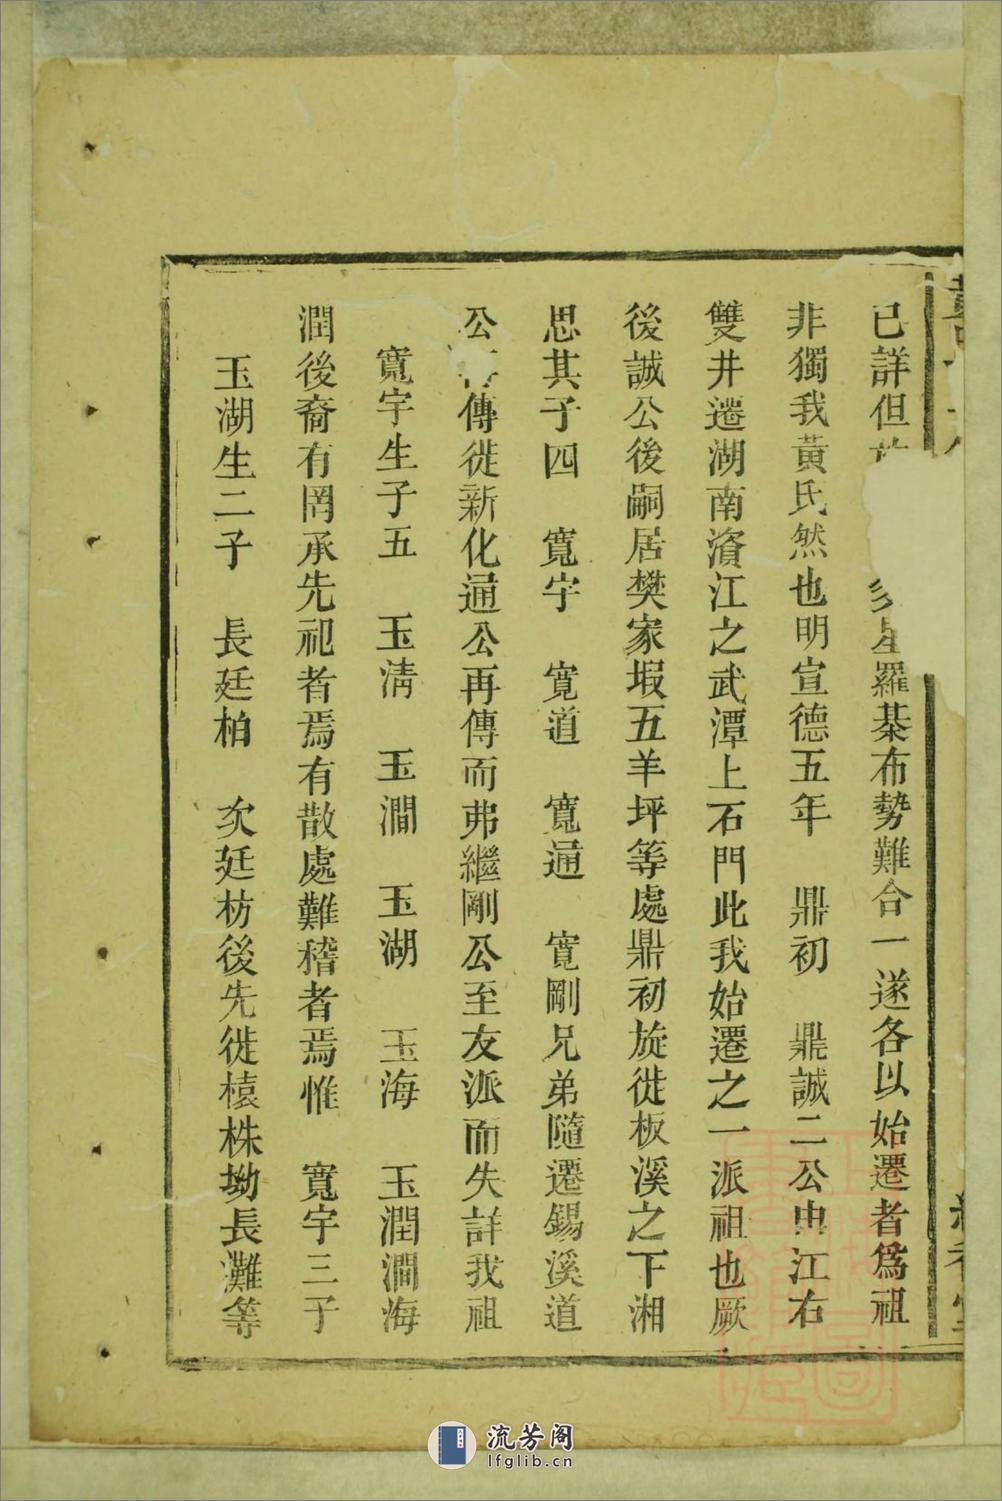 已詳但
星羅棊布勢難合一遂各以始遷者爲祖
非獨我黃氏然也明宣德五年 鼎初 鼎誠二公由江右
雙井遷湖南濱江之武潭上石門此我始遷之一派祖也厥
後誠公後嗣居樊家塅五羊坪等處鼎初旋徙板溪之下湘
思其子四 寬宇 寬道 寬通 寬剛兄弟隨遷錫溪道
公
傳徙新化通公再傳而弗繼剛公至友派而失詳我祖
寬宇生子五 玉清 玉澗 玉湖 玉海 玉潤澗海
潤後裔有罔承先祀者焉有散處難稽者焉惟 寬宇三子
玉湖生二子 長廷柏 次廷枋後先徙檺株坳長灘等
流芳阁
lfglib.cn